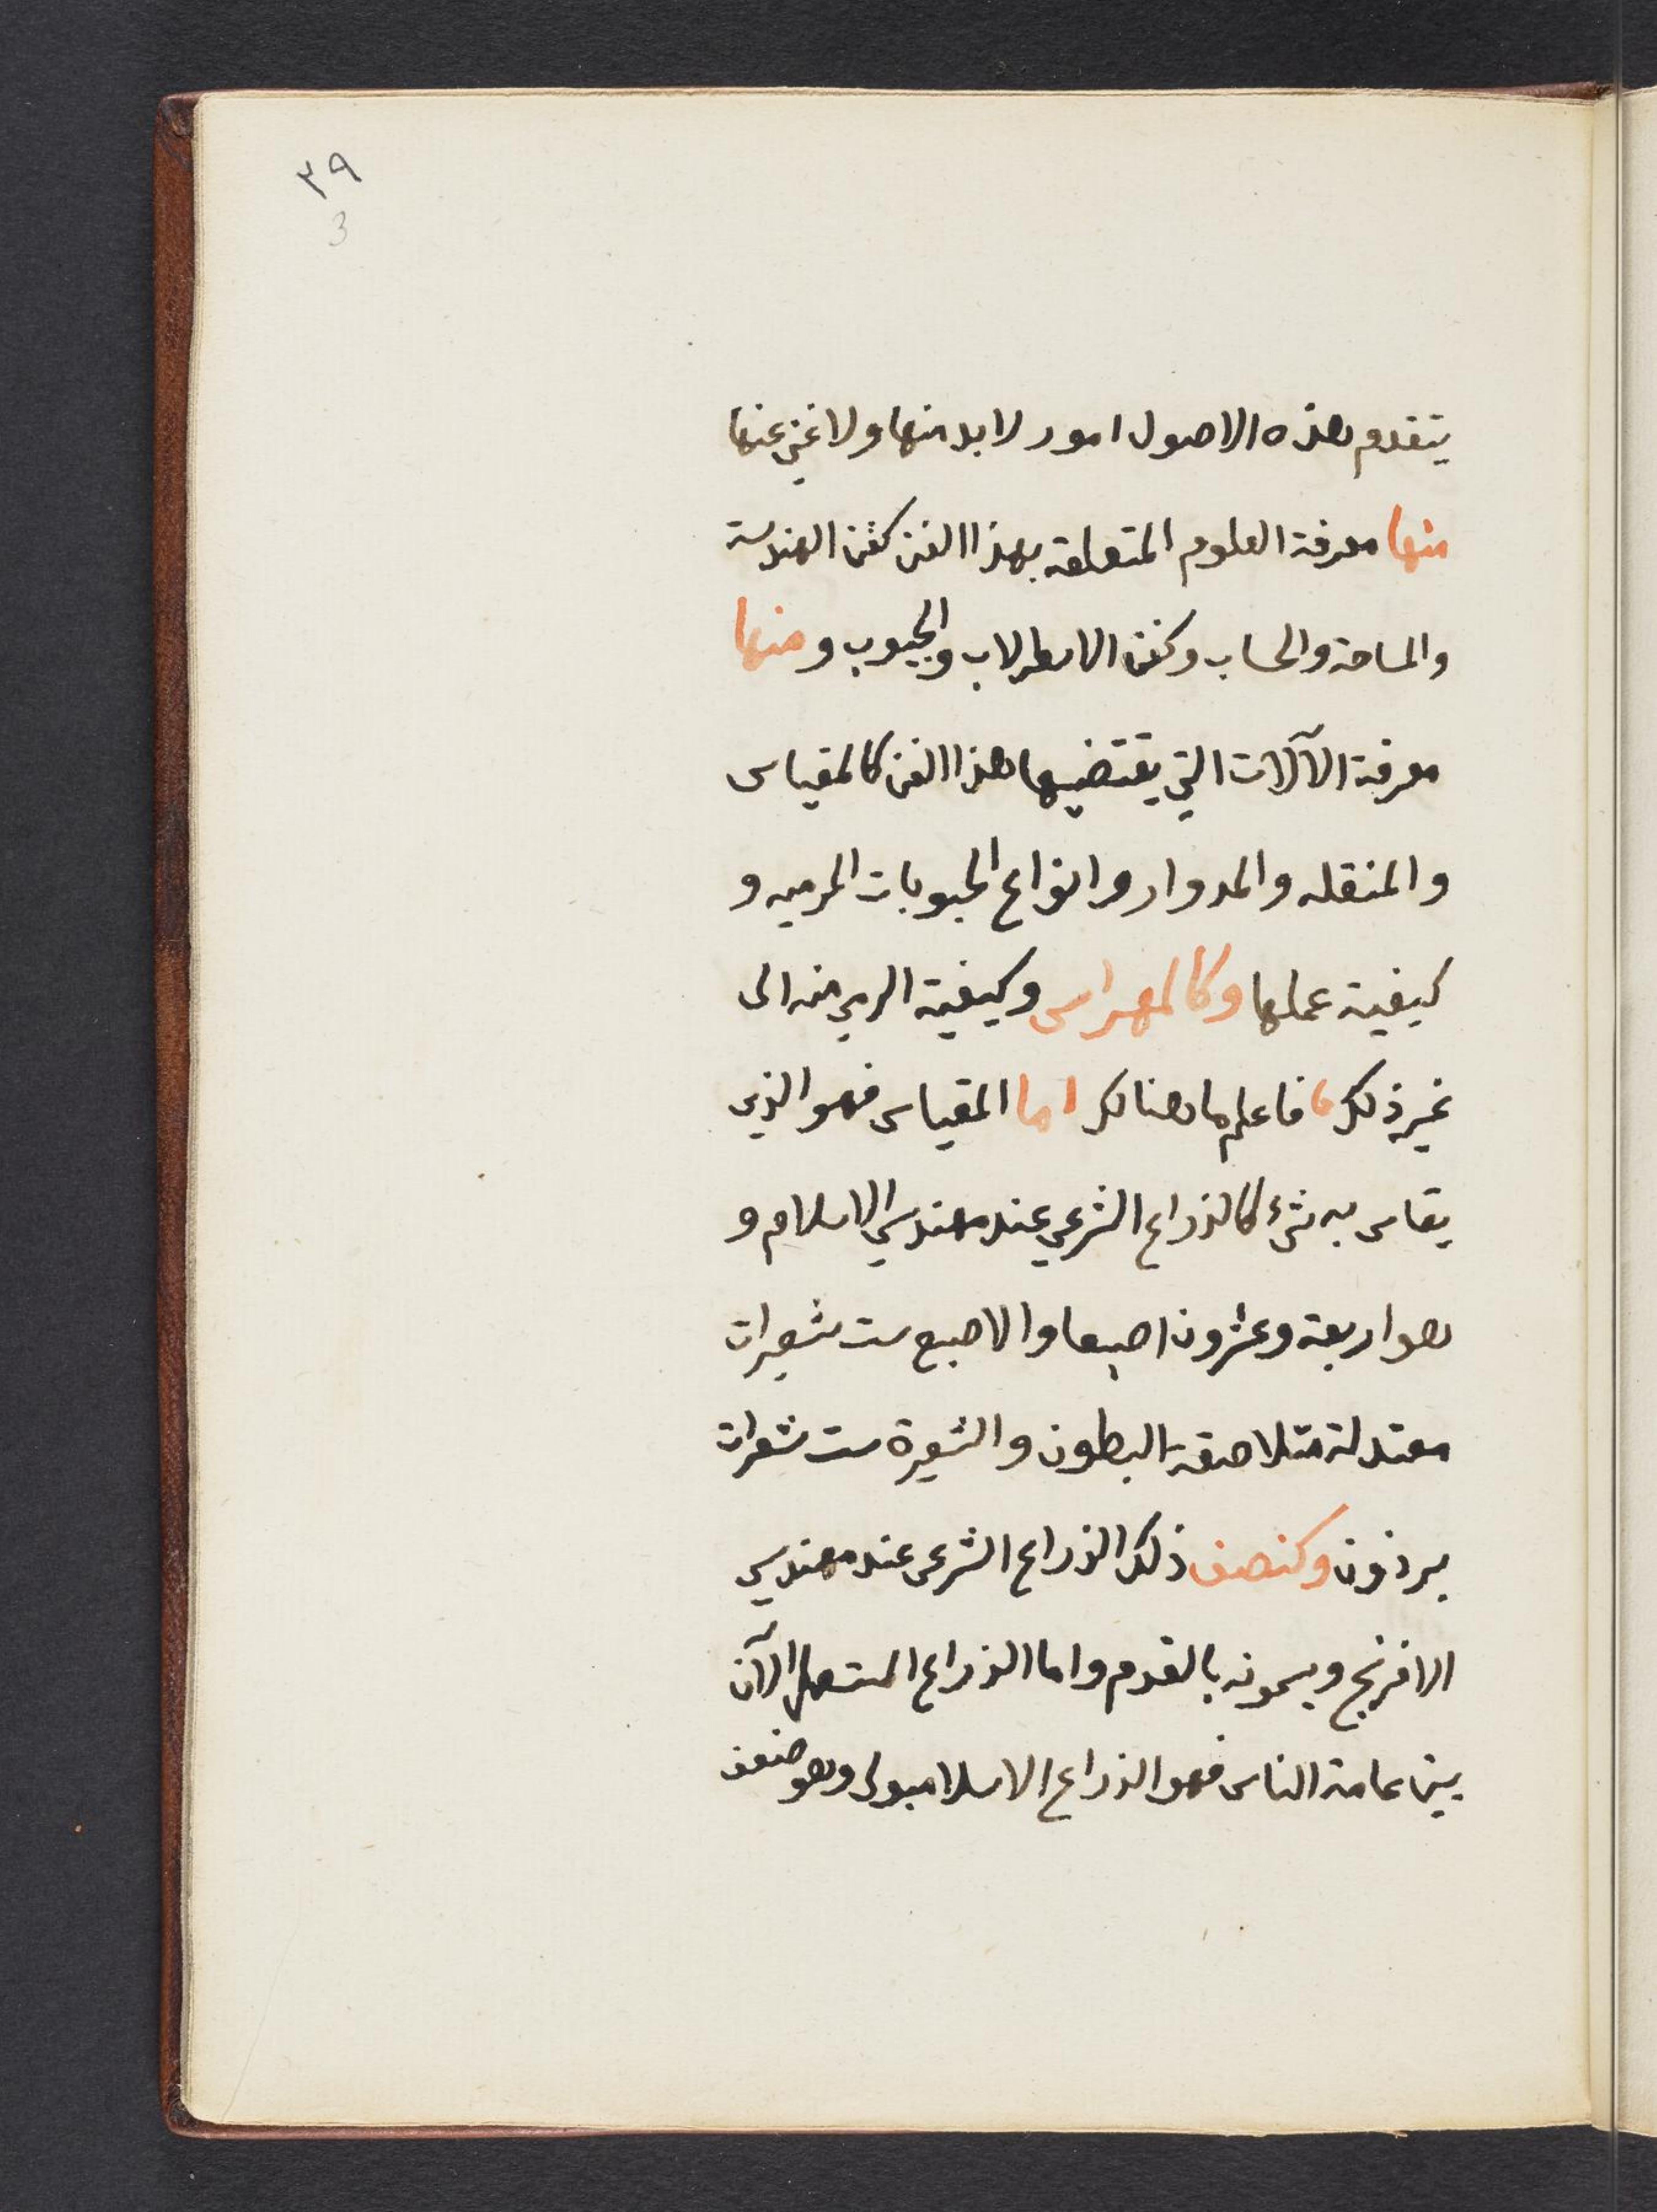 ٣٩
3
يتقدم هذه الاصول امور لا بد منها ولا غني عنها
منها معرفة العلوم المتعلقه بهذا الفن كفن الهندسة
والمساحة والحساب وكفن الاسطرلاب والجيوب ومنها
معرفة الآلات التي يقتضيها هذا الفن كالمقياس
والمنقله والمدوار وانواع الحبوبات المرميه و
كيفية عملها وكالمهراس وكيفية الرمي منه الى
غير ذلك فاعلم ما هنالك اما المقياس فهو الذي
يقاس به شيء كالذراع الشرعي عند مهندسي الاسلام و
هو اربعة وعشرون اصبعا والاصبع ست شعيرات
معتدلة متلاصقة البطون والشعيرة ست شعرات
برذون وكنصف ذلك الذراع الشرعى عند مهندسي
الافرنج ويسمونه بالقدم واما الذراع المستعمل الآن
بين عامة الناس فهو الذراع الاسلامبولى وهو ضعف